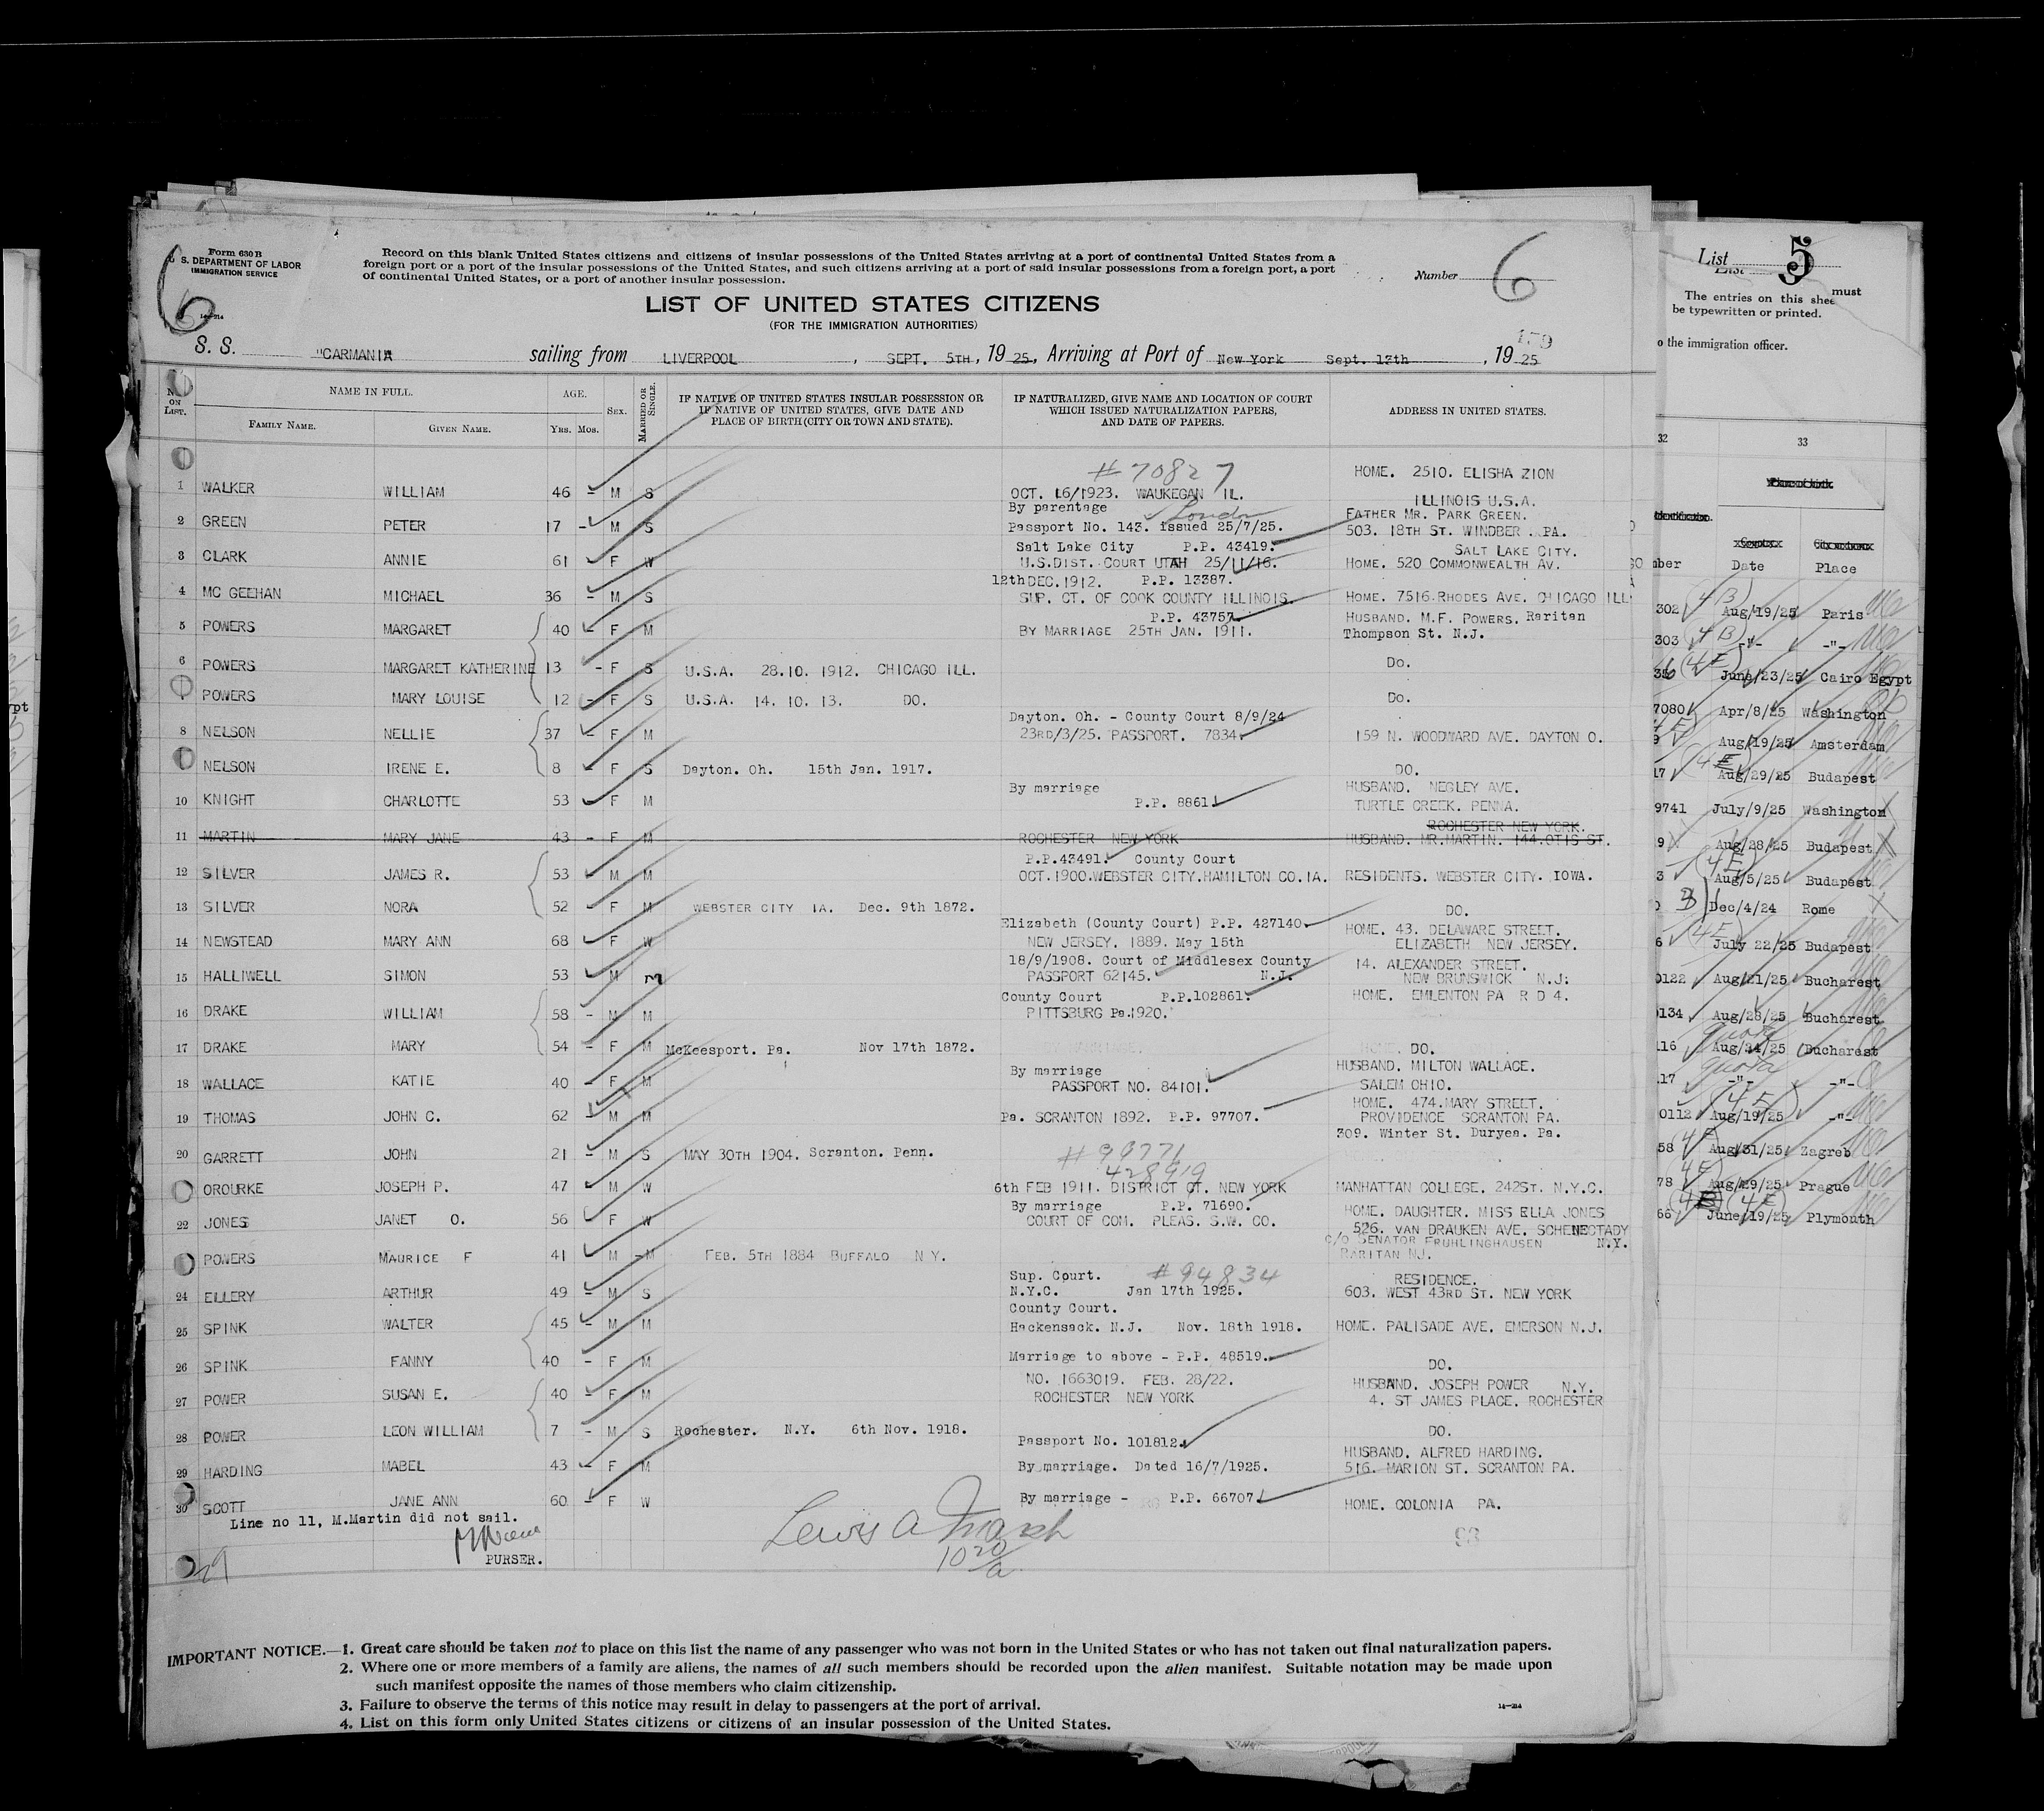 Form 630 B
U. S. DEPARTMENT OF LABOR
IMMIGRATION SERVICE
6
Record on this blank United States citizens and citizens of insular possessions of the United States arriving at a port of continental United States from a
foreign port or a port of the insular possessions of the United States, and such citizens arriving at a port of said insular possessions from a foreign port, a port
of continental United States, or a port of another insular possession.
Number 6
LIST OF UNITED STATES CITIZENS
(FOR THE IMMIGRATION AUTHORITIES)
179
S. S. "CARMANIA sailing from LIVERPOOL, SEPT. 5TH, 1925, Arriving at Port of New York Sept. 13th, 1925
No. ON LIST. NAME IN FULL. FAMILY NAME. GIVEN NAME. AGE. Yrs. Mos. Sex. MARRIED OR SINGLE.
IF NATIVE OF UNITED STATES INSULAR POSSESSION OR
IF NATIVE OF UNITED STATES, GIVE DATE AND
PLACE OF BIRTH (CITY OR TOWN AND STATE).
IF NATURALIZED, GIVE NAME AND LOCATION OF COURT
WHICH ISSUED NATURALIZATION PAPERS,
AND DATE OF PAPERS.
ADDRESS IN UNITED STATES.
# 70827 HOME. 2510. ELISHA ZION
1 WALKER WILLIAM 46 - M S OCT. 16/1923. WAUKEGAN IL. ILLINOIS U.S.A.
By parentage London FATHER MR. PARK GREEN.
2 GREEN PETER 17 - M S Passport No. 143. issued 25/7/25. 503. 18TH ST. WINDBER. PA.
Salt Lake City P.P. 43419. SALT LAKE CITY.
3 CLARK ANNIE 61 - F W U.S.DIST. COURT UTAH 25/11/16. HOME. 520 COMMONWEALTH AV.
12th DEC. 1912. P.P. 13387.
4 MC GEEHAN MICHAEL 36 - M S SUP. CT. OF COOK COUNTY ILLINOIS. HOME. 7516.RHODES AVE. CHICAGO ILL.
P.P. 43757. HUSBAND. M.F. POWERS. Raritan
5 POWERS MARGARET 40 - F M BY MARRIAGE 25TH JAN. 1911. Thompson St. N.J.
6 POWERS MARGARET KATHERINE 13 - F S U.S.A. 28.10. 1912. CHICAGO ILL. Do.
POWERS MARY LOUISE 12 - F S U.S.A. 14. 10. 13. DO. Do.
Dayton. Oh. - County Court 8/9/24
8 NELSON NELLIE 37 - F M 23RD/3/25. PASSPORT. 7834. 159 N. WOODWARD AVE. DAYTON O.
NELSON IRENE E. 8 - F S Dayton. Oh. 15th Jan. 1917. DO.
By marriage HUSBAND. NEGLEY AVE.
10 KNIGHT CHARLOTTE 53 F M P.P. 8861. TURTLE CREEK. PENNA.
ROCHESTER NEW YORK.
11 MARTIN MARY JANE 43 - F M ROCHESTER NEW YORK HUSBAND. MR.MARTIN. 144.OTIS ST.
P.P.43491. County Court
12 SILVER JAMES R. 53 - M M OCT.1900.WEBSTER CITY.HAMILTON CO.IA. RESIDENTS. WEBSTER CITY. IOWA.
13 SILVER NORA 52 - F M WEBSTER CITY IA. Dec. 9th 1872. DO.
Elizabeth (County Court) P.P. 427140. HOME. 43. DELAWARE STREET.
14 NEWSTEAD MARY ANN 68 F W NEW JERSEY. 1889. May 15th ELIZABETH NEW JERSEY.
18/9/1908. Court of Middlesex County 14. ALEXANDER STREET.
15 HALLIWELL SIMON 53 M M PASSPORT 62145. N.J. NEW BRUNSWICK N.J.
County Court P.P.102861. HOME. EMLENTON PA R D 4.
16 DRAKE WILLIAM 58 - M M PITTSBURG Pa.1920.
17 DRAKE MARY 54 - F M McKeesport. Pa. Nov 17th 1872. DO.
By marriage HUSBAND. MILTON WALLACE.
18 WALLACE KATIE 40 - F M PASSPORT NO. 84101. SALEM OHIO.
HOME. 474.MARY STREET.
19 THOMAS JOHN C. 62 - M M Pa. SCRANTON 1892. P.P. 97707. PROVIDENCE SCRANTON PA.
309. Winter St. Duryea. Pa.
20 GARRETT JOHN 21 - M S MAY 30TH 1904. Scranton. Penn.
428919
OROURKE JOSEPH P. 47 M W 6th FEB 1911. DISTRICT CT. NEW YORK MANHATTAN COLLEGE. 242ST. N.Y.C.
By marriage P.P. 71690. HOME. DAUGHTER. MISS ELLA JONES
22 JONES JANET O. 56 F W COURT OF COM. PLEAS. S.W. CO. 526. VAN DRAUKEN AVE. SCHENECTADY
C/O SENATOR FRUHLINGHAUSEN N.Y.
POWERS MAURICE F 41 M - M FEB. 5TH 1884 BUFFALO N Y. RARITAN NJ.
Sup. Court. # 94834 RESIDENCE.
24 ELLERY ARTHUR 49 - M S N.Y.C. Jan 17th 1925. 603. WEST 43RD ST. NEW YORK
County Court.
25 SPINK WALTER 45 - M M Hackensack. N.J. Nov. 18th 1918. HOME. PALISADE AVE. EMERSON N.J.
26 SPINK FANNY 40 - F M Marriage to above - P.P. 48519. DO.
NO. 1663019. FEB. 28/22. HUSBAND. JOSEPH POWER N.Y.
27 POWER SUSAN E. 40 - F M ROCHESTER NEW YORK 4. ST JAMES PLACE. ROCHESTER
28 POWER LEON WILLIAM 7 - M S Rochester. N.Y. 6th Nov. 1918. DO.
Passport No. 101812. HUSBAND. ALFRED HARDING.
29 HARDING MABEL 43 - F M By marriage. Dated 16/7/1925. 516. MARION ST. SCRANTON PA.
30 SCOTT JANE ANN 60 - F W By marriage - P.P. 66707. HOME. COLONIA PA.
Line no 11, M.Martin did not sail.
PURSER.
Lewis A Marsh
10 20/a
93
29
IMPORTANT NOTICE.—1. Great care should be taken not to place on this list the name of any passenger who was not born in the United States or who has not taken out final naturalization papers.
2. Where one or more members of a family are aliens, the names of all such members should be recorded upon the alien manifest. Suitable notation may be made upon
such manifest opposite the names of those members who claim citizenship.
3. Failure to observe the terms of this notice may result in delay to passengers at the port of arrival.
4. List on this form only United States citizens or citizens of an insular possession of the United States.
14-214
List 5
The entries on this sheet must
be typewritten or printed.
o the immigration officer.
32 33
mber Date Place
302 (4 B) Aug/19/25 Paris
303 (4 B) -"- -"-
(4 E) June/23/25 Cairo Egypt
7080 Apr/8/25 Washington
Aug/19/25 Amsterdam
17 (4 E) Aug/29/25 Budapest
9741 July/9/25 Washington
9 Aug/28/25 Budapest
3 (4 E) Aug/5/25 Budapest
Dec/4/24 Rome
6 (4 E) July 22/25 Budapest
0122 Aug/21/25 Bucharest
0134 Aug/28/25 Bucharest
116 quota Aug/24/25 Bucharest
17 quota -"- -"-
0112 (4 E) Aug/19/25 -"-
58 Aug/31/25 Zagreb
78 Aug/29/25 Prague
66 (4 E) June/19/25 Plymouth